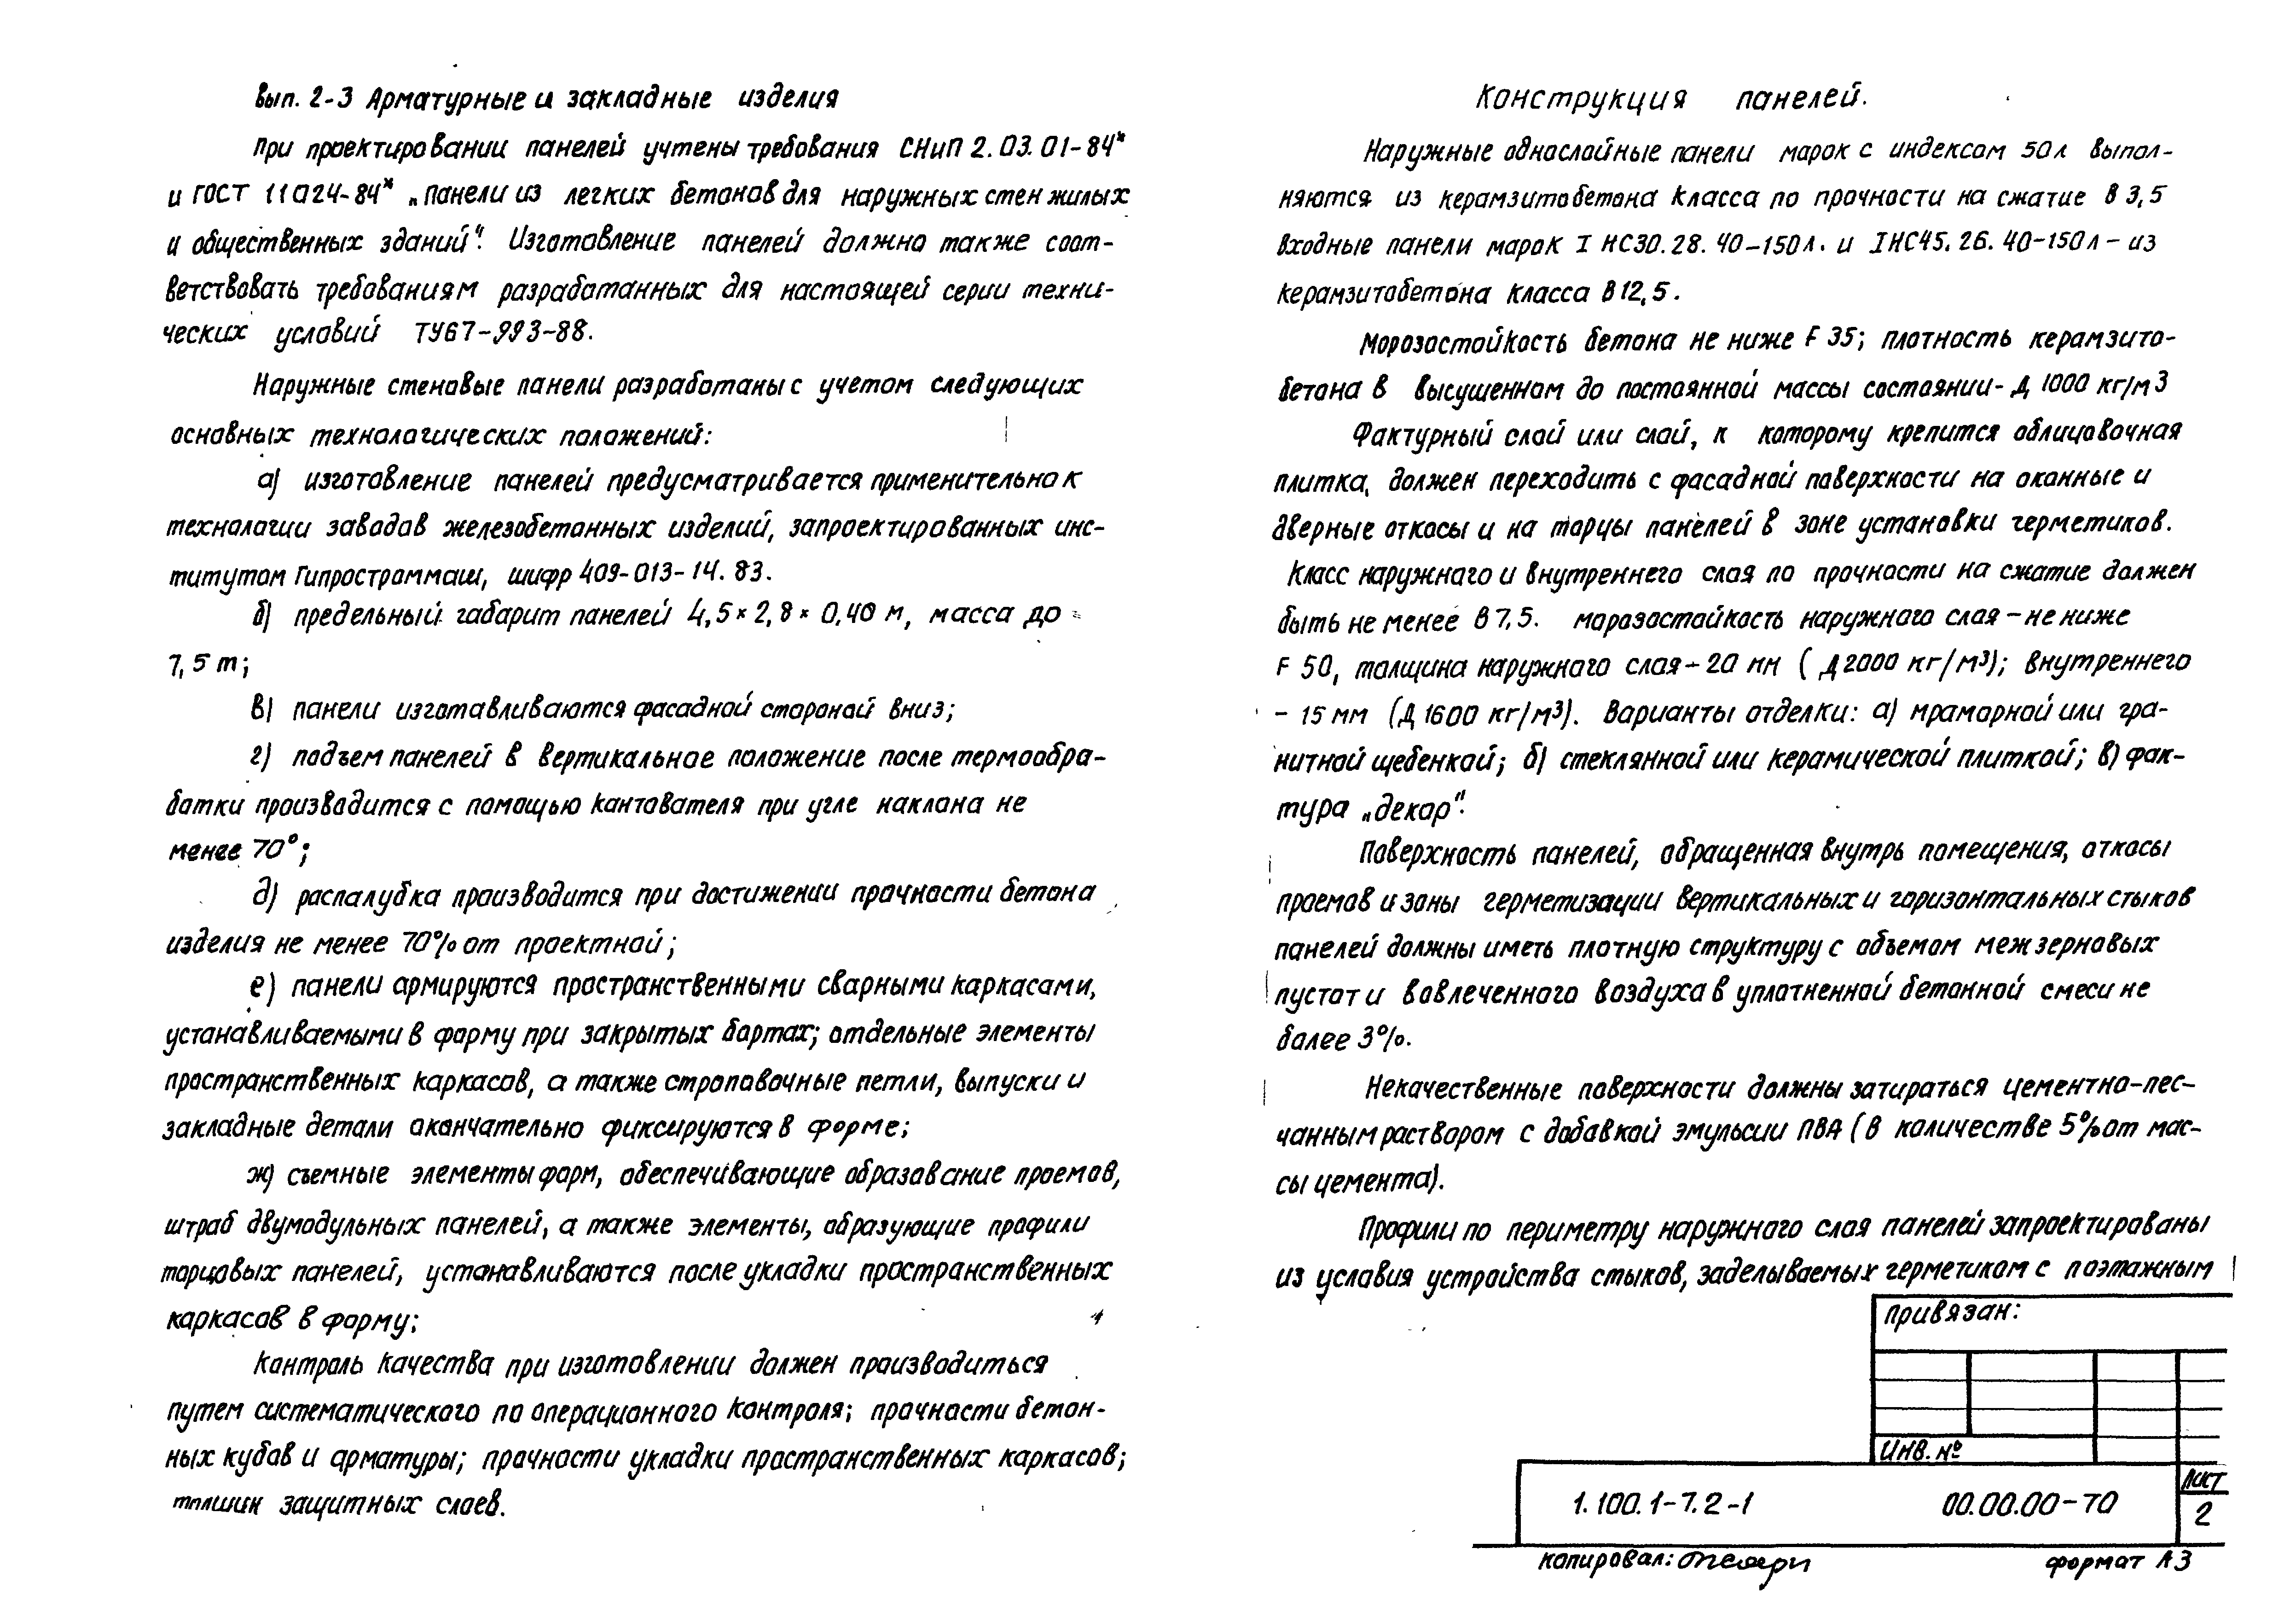 Вып. 2-3 Арматурные и закладные изделия
При проектировании панелей учтены требования СНиП 2.03.01-84*
и ГОСТ 11024-84* „Панели из легких бетонов для наружных стен жилых
и общественных зданий". Изготовление панелей должно также соот-
ветствовать требованиям разработанных для настоящей серии техни-
ческих условий ТУ67-993-88.
Наружные стеновые панели разработаны с учетом следующих
основных технологических положений:
а) изготовление панелей предусматривается применительно к
технологии заводов железобетонных изделий, запроектированных инс-
титутом Гипростроммаш, шифр 409-013-14.83.
б) предельный габарит панелей 4,5×2,8×0,40 м, масса до
7,5 т;
в) панели изготавливаются фасадной стороной вниз;
г) подъем панелей в вертикальное положение после термообра-
ботки производится с помощью кантователя при угле наклона не
менее 70°;
д) распалубка производится при достижении прочности бетона
изделия не менее 70% от проектной;
е) панели армируются пространственными сварными каркасами,
устанавливаемыми в форму при закрытых бортах; отдельные элементы
пространственных каркасов, а также строповочные петли, выпуски и
закладные детали окончательно фиксируются в форме;
ж) съемные элементы форм, обеспечивающие образование проемов,
штраб двумодульных панелей, а также элементы, образующие профили
торцовых панелей, устанавливаются после укладки пространственных
каркасов в форму;
Контроль качества при изготовлении должен производиться
путем систематического по операционного контроля; прочности бетон-
ных кубов и арматуры; прочности укладки пространственных каркасов;
толщин защитных слоев.
Конструкция панелей.
Наружные однослойные панели марок с индексом 50л выпол-
няются из керамзитобетона класса по прочности на сжатие В 3,5
Входные панели марок I НС30.28.40-150л. и IНС45.26.40-150л - из
керамзитобетона класса В12,5.
Морозостойкость бетона не ниже F 35; плотность керамзито-
бетона в высушенном до постоянной массы состоянии - Д 1000 кг/м3
Фактурный слой или слой, к которому крепится облицовочная
плитка, должен переходить с фасадной поверхности на оконные и
дверные откосы и на торцы панелей в зоне установки герметиков.
Класс наружного и внутреннего слоя по прочности на сжатие должен
быть не менее В 7,5. морозостойкость наружного слоя - не ниже
F 50, толщина наружного слоя - 20 мм (Д2000 кг/м³); внутреннего
- 15 мм (Д 1600 кг/м³). Варианты отделки: а) мраморной или гра-
нитной щебенкой; б) стеклянной или керамической плиткой; в) фак-
тура „декор".
Поверхность панелей, обращенная внутрь помещения, откосы
проемов и зоны герметизации вертикальных и горизонтальных стыков
панелей должны иметь плотную структуру с объемом межзерновых
пустот и вовлеченного воздуха в уплотненной бетонной смеси не
более 3%.
Некачественные поверхности должны затираться цементно-пес-
чанным раствором с добавкой эмульсии ПВА (в количестве 5% от мас-
сы цемента).
Профили по периметру наружного слоя панелей запроектированы
из условия устройства стыков, заделываемых герметиком с поэтажным
Привязан:
Инв. №
1.100.1-7.2-1 00.00.00-70
Лист
2
копировал:
формат А3